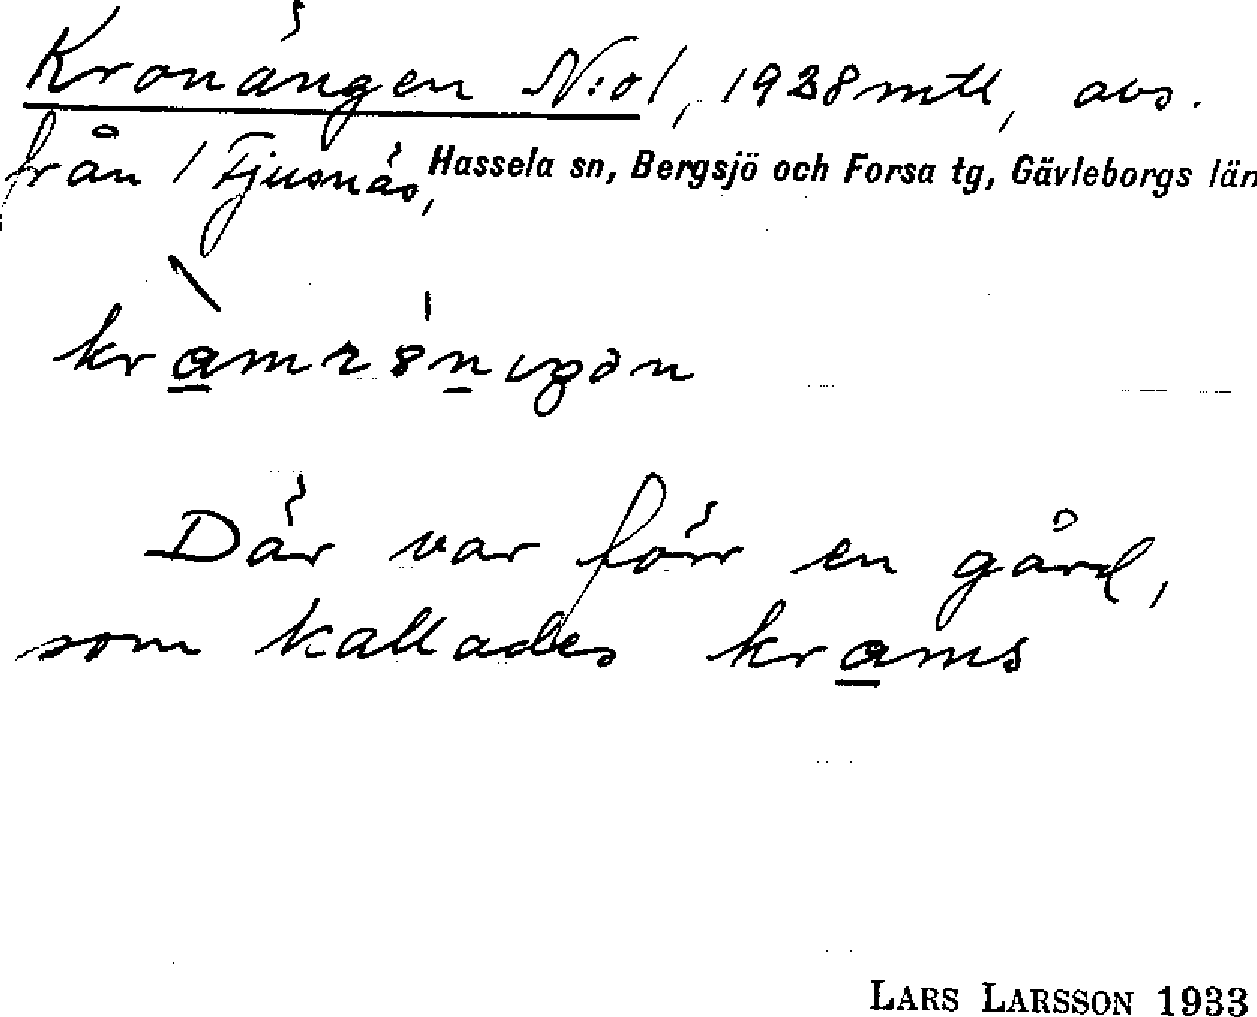 Kronängen N:o 1, 1928 mtl, avs.
från 1 Fjusnäs, Hassela sn, Bergsjö och Forsa tg, Gävleborgs län
Där var förr en gård,
som kallades krams
LARS LARSSON 1933